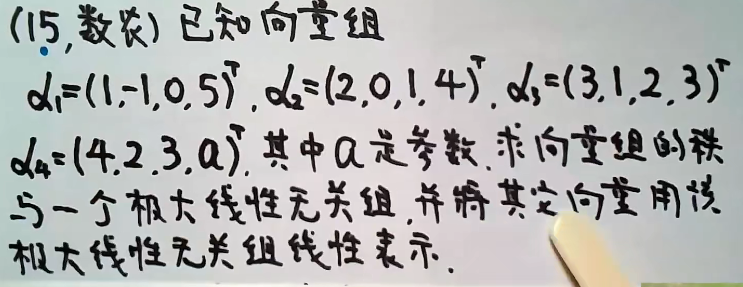 (15,数农) 已知向量组
α₁=(1,-1,0,5)ᵀ, α₂=(2,0,1,4)ᵀ, α₃=(3,1,2,3)ᵀ
α₄=(4,2,3,a)ᵀ, 其中a是参数, 求向量组的秩
与一个极大线性无关组, 并将其它向量用该
极大线性无关组线性表示.